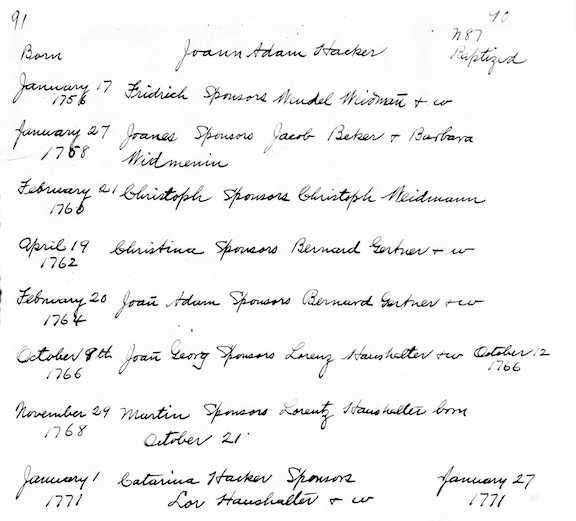 91 70
N87
Born Joann Adam Hacker Baptized
January 17 Fridrich Sponsors Wendel Widman̄ + w
1756
January 27 Joanes Sponsors Jacob Beker + Barbara
1758 Widmenin
February 21 Christoph Sponsors Christoph Weidmann
1760
April 19 Christina Sponsors Bernard Gertner + w
1762
February 20 Joan̄ Adam Sponsors Bernard Gertner + w
1764
October 8th Joan̄ Georg Sponsors Lorenz Haushalter + w October 12
1766 1766
November 29 Martin Sponsors Lorentz Haushalter born
1768 October 21
January 1 Catarina Hacker Sponsors January 27
1771 Lor Haushalter + w 1771